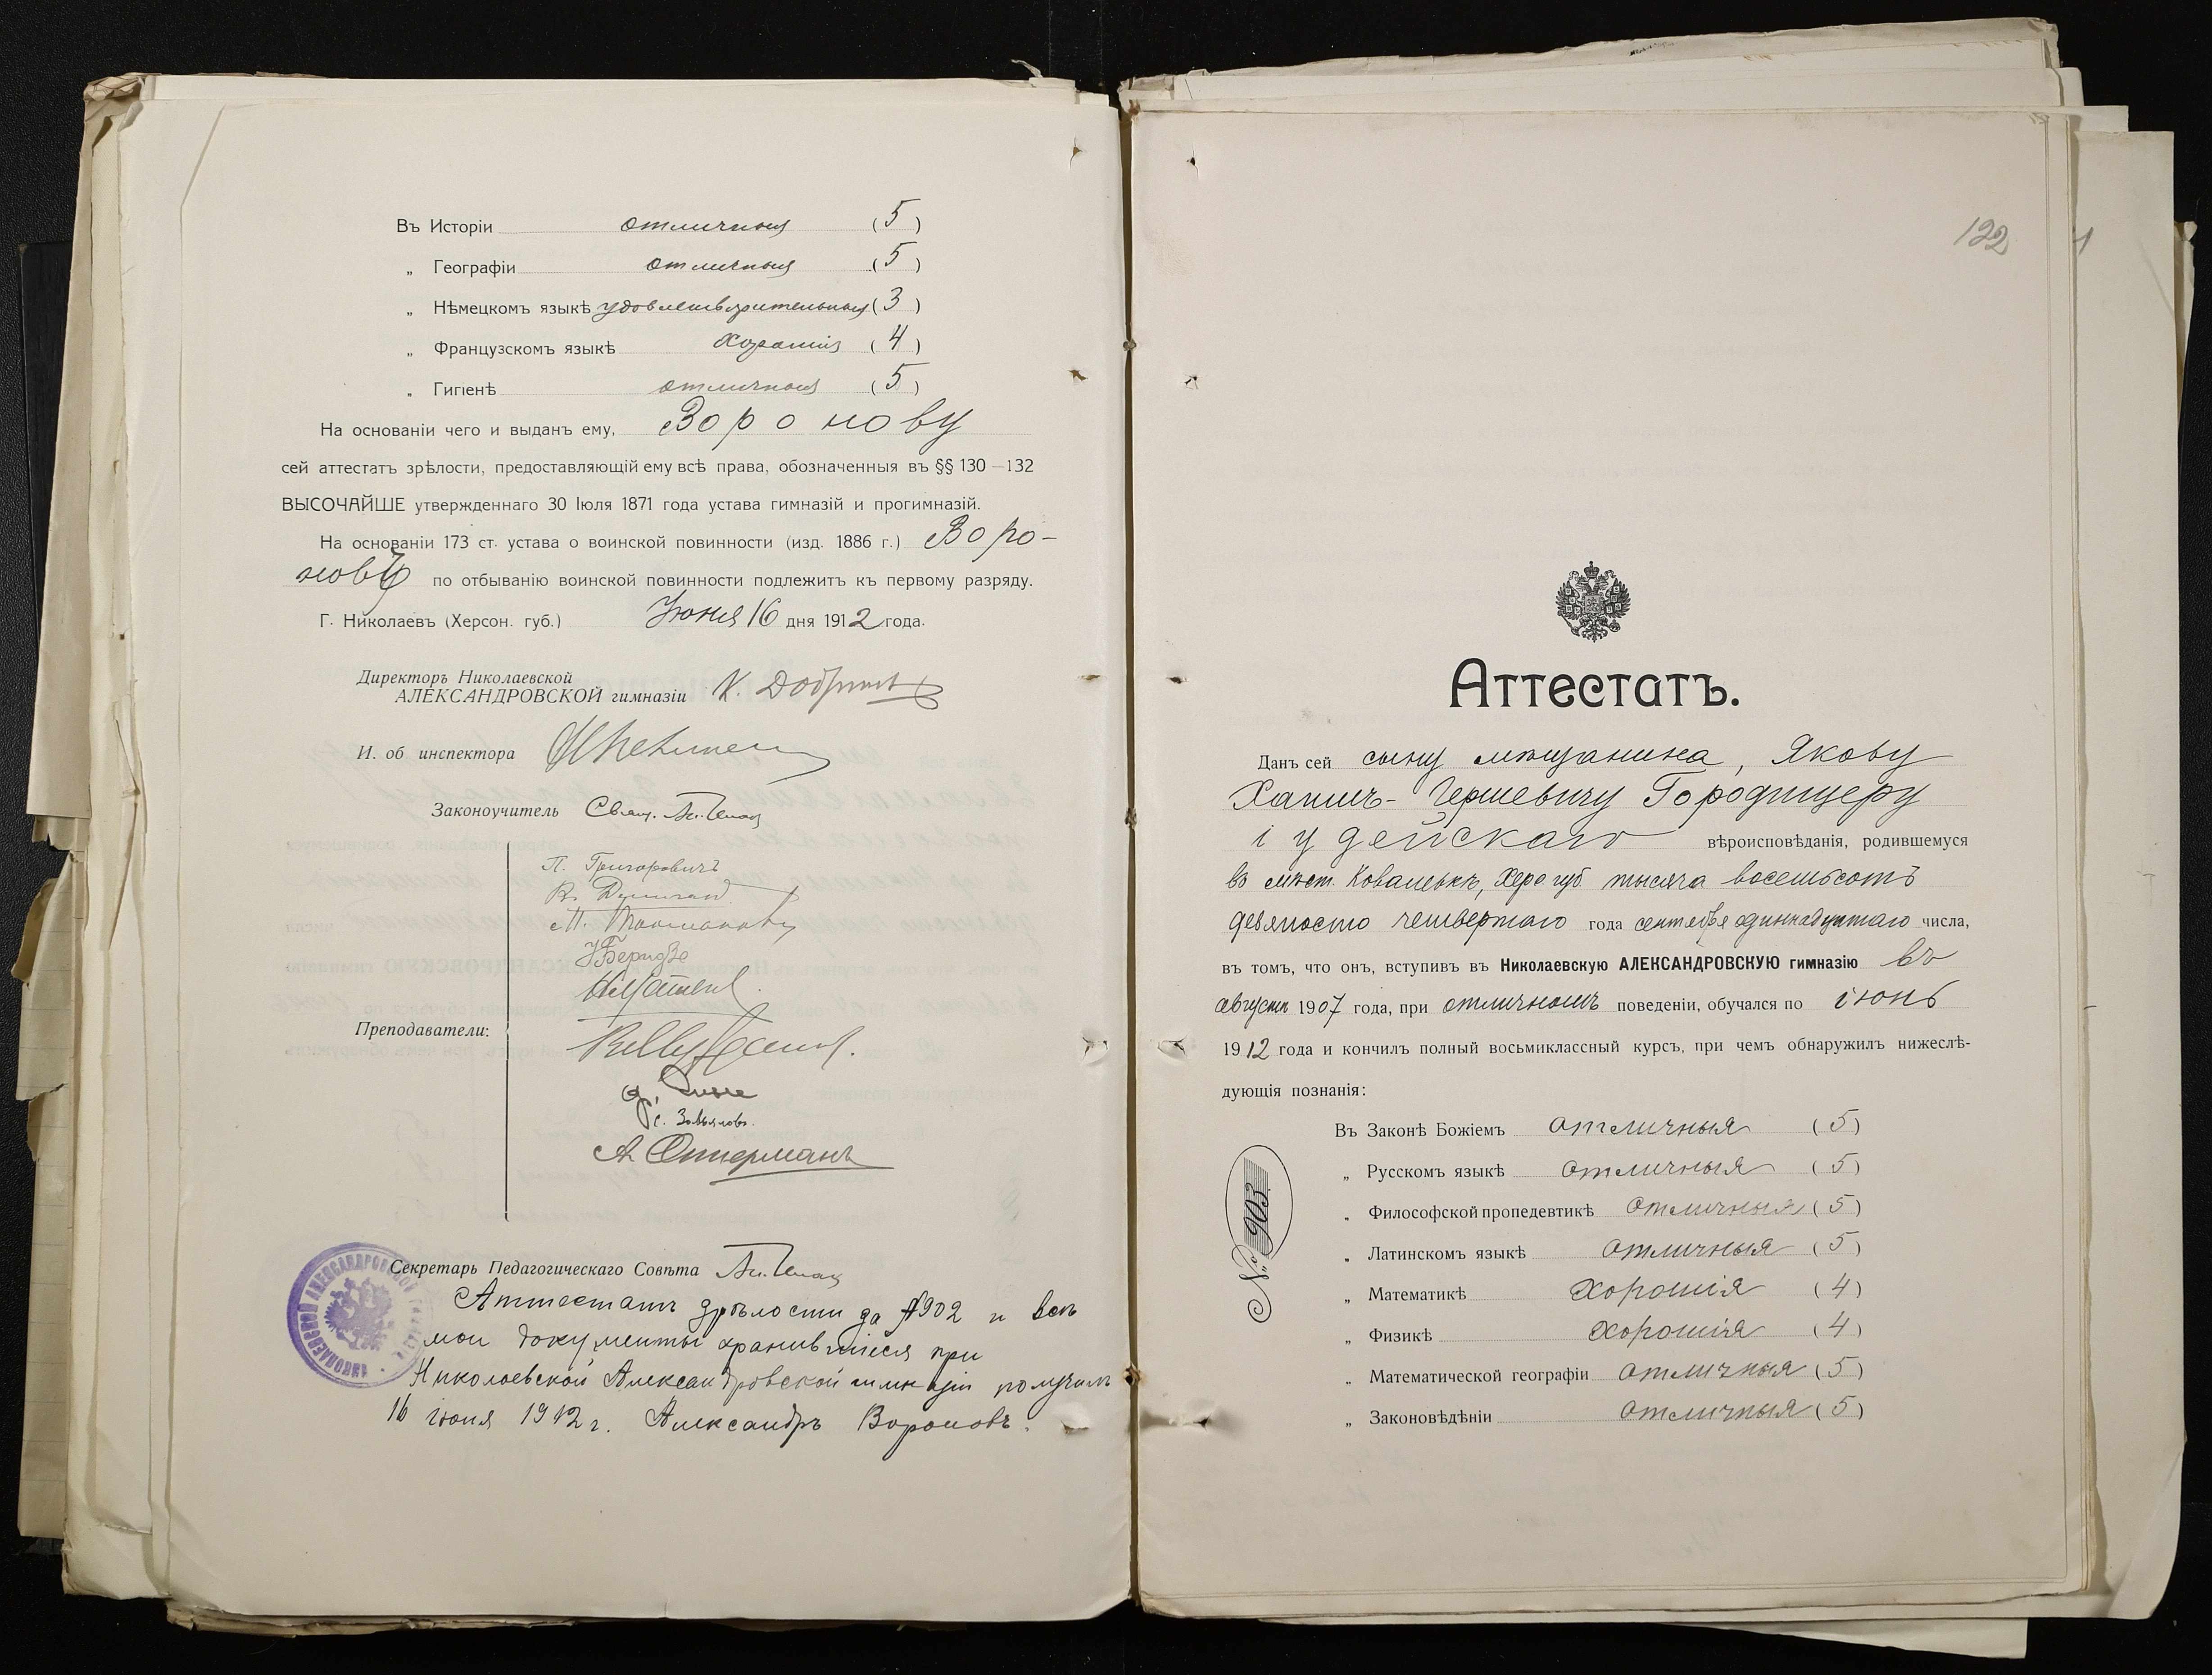 Въ Исторіи отличныя (5)
„ Географіи отличныя (5)
„ Нѣмецкомъ языкѣ удовлетворительныя (3)
„ Французскомъ языкѣ хорошія (4)
„ Гигіенѣ отличныя (5)
На основаніи чего и выданъ ему, Воронову
сей аттестатъ зрѣлости, предоставляющій ему всѣ права, обозначенныя въ §§ 130—132
ВЫСОЧАЙШЕ утвержденнаго 30 Іюля 1871 года устава гимназій и прогимназій.
На основаніи 173 ст. устава о воинской повинности (изд. 1886 г.) Воро-
новъ по отбыванію воинской повинности подлежитъ къ первому разряду.
Г. Николаевъ (Херсон. губ.) Іюня 16 дня 1912 года.
Директоръ Николаевской
АЛЕКСАНДРОВСКОЙ гимназіи К.
И. об. инспектора
Законоучитель Свящ.
П. Григоровичъ
В.
П.
Беридзе
Преподаватели:
С. Завьяловъ.
А. Оттерманъ
Секретарь Педагогическаго Совѣта
Аттестатъ зрѣлости за №902 и всѣ
мои документы хранившіеся при
Николаевской Александровской гимназіи получилъ
16 іюня 1912 г. Александръ Вороновъ.
122
Аттестатъ.
Данъ сей сыну мѣщанина, Якову
Хаимъ-Гершевичу Городищеру
іудейскаго вѣроисповѣданія, родившемуся
въ мѣст. Ковалевкѣ, Херс. губ. тысяча восемьсотъ
девяносто четвертаго года сентября одиннадцатаго числа,
въ томъ, что онъ, вступивъ въ Николаевскую АЛЕКСАНДРОВСКУЮ гимназію въ
августѣ 1907 года, при отличномъ поведеніи, обучался по іюнь
1912 года и кончилъ полный восьмиклассный курсъ, при чемъ обнаружилъ нижеслѣ-
дующія познанія:
Въ Законѣ Божіемъ отличныя (5)
„ Русскомъ языкѣ отличныя (5)
„ Философской пропедевтикѣ отличныя (5)
„ Латинскомъ языкѣ отличныя (5)
„ Математикѣ хорошія (4)
„ Физикѣ хорошія (4)
„ Математической географіи отличныя (5)
„ Законовѣдѣніи отличныя (5)
№ 903